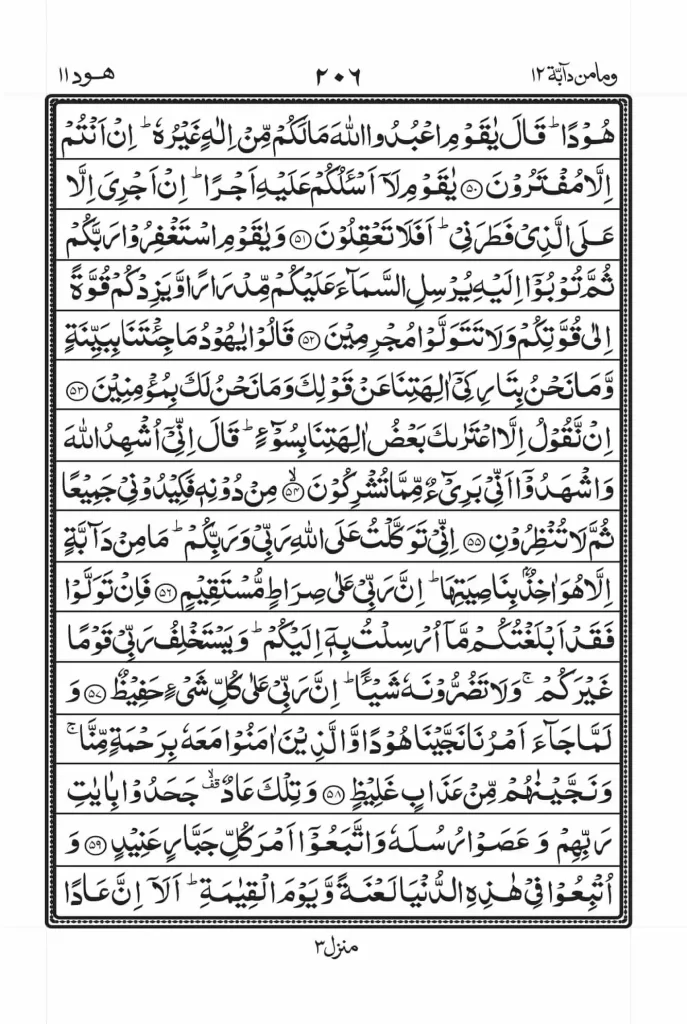 ومامن دآبّة ١٢ ٢٠٦ هود ١١
هُوْدًا ؕ قَالَ یٰقَوْمِ اعْبُدُوا اللّٰهَ مَا لَكُمْ مِّنْ اِلٰهٍ غَیْرُهٗ ؕ اِنْ اَنْتُمْ
اِلَّا مُفْتَرُوْنَ ﴿۵۰﴾ یٰقَوْمِ لَاۤ اَسْـَٔلُكُمْ عَلَیْهِ اَجْرًا ؕ اِنْ اَجْرِیَ اِلَّا
عَلَی الَّذِیْ فَطَرَنِیْ ؕ اَفَلَا تَعْقِلُوْنَ ﴿۵۱﴾ وَیٰقَوْمِ اسْتَغْفِرُوْا رَبَّكُمْ
ثُمَّ تُوْبُوْۤا اِلَیْهِ یُرْسِلِ السَّمَآءَ عَلَیْكُمْ مِّدْرَارًا وَّیَزِدْكُمْ قُوَّةً
اِلٰی قُوَّتِكُمْ وَلَا تَتَوَلَّوْا مُجْرِمِیْنَ ﴿۵۲﴾ قَالُوْا یٰهُوْدُ مَا جِئْتَنَا بِبَیِّنَةٍ
وَّمَا نَحْنُ بِتَارِكِیْۤ اٰلِهَتِنَا عَنْ قَوْلِكَ وَمَا نَحْنُ لَكَ بِمُؤْمِنِیْنَ ﴿۵۳﴾
اِنْ نَّقُوْلُ اِلَّا اعْتَرٰىكَ بَعْضُ اٰلِهَتِنَا بِسُوْٓءٍ ؕ قَالَ اِنِّیْۤ اُشْهِدُ اللّٰهَ
وَاشْهَدُوْۤا اَنِّیْ بَرِیْٓءٌ مِّمَّا تُشْرِكُوْنَ ﴿۵۴﴾ۙ مِنْ دُوْنِهٖ فَكِیْدُوْنِیْ جَمِیْعًا
ثُمَّ لَا تُنْظِرُوْنِ ﴿۵۵﴾ اِنِّیْ تَوَكَّلْتُ عَلَی اللّٰهِ رَبِّیْ وَرَبِّكُمْ ؕ مَا مِنْ دَآبَّةٍ
اِلَّا هُوَ اٰخِذٌۢ بِنَاصِیَتِهَا ؕ اِنَّ رَبِّیْ عَلٰی صِرَاطٍ مُّسْتَقِیْمٍ ﴿۵۶﴾ فَاِنْ تَوَلَّوْا
فَقَدْ اَبْلَغْتُكُمْ مَّاۤ اُرْسِلْتُ بِهٖۤ اِلَیْكُمْ ؕ وَیَسْتَخْلِفُ رَبِّیْ قَوْمًا
غَیْرَكُمْ ۚ وَلَا تَضُرُّوْنَهٗ شَیْـًٔا ؕ اِنَّ رَبِّیْ عَلٰی كُلِّ شَیْءٍ حَفِیْظٌ ﴿۵۷﴾ وَ
لَمَّا جَآءَ اَمْرُنَا نَجَّیْنَا هُوْدًا وَّالَّذِیْنَ اٰمَنُوْا مَعَهٗ بِرَحْمَةٍ مِّنَّا ۚ
وَنَجَّیْنٰهُمْ مِّنْ عَذَابٍ غَلِیْظٍ ﴿۵۸﴾ وَتِلْكَ عَادٌ ۟ۙ جَحَدُوْا بِاٰیٰتِ
رَبِّهِمْ وَعَصَوْا رُسُلَهٗ وَاتَّبَعُوْۤا اَمْرَ كُلِّ جَبَّارٍ عَنِیْدٍ ﴿۵۹﴾ وَ
اُتْبِعُوْا فِیْ هٰذِهِ الدُّنْیَا لَعْنَةً وَّیَوْمَ الْقِیٰمَةِ ؕ اَلَاۤ اِنَّ عَادًا
منزل ٣